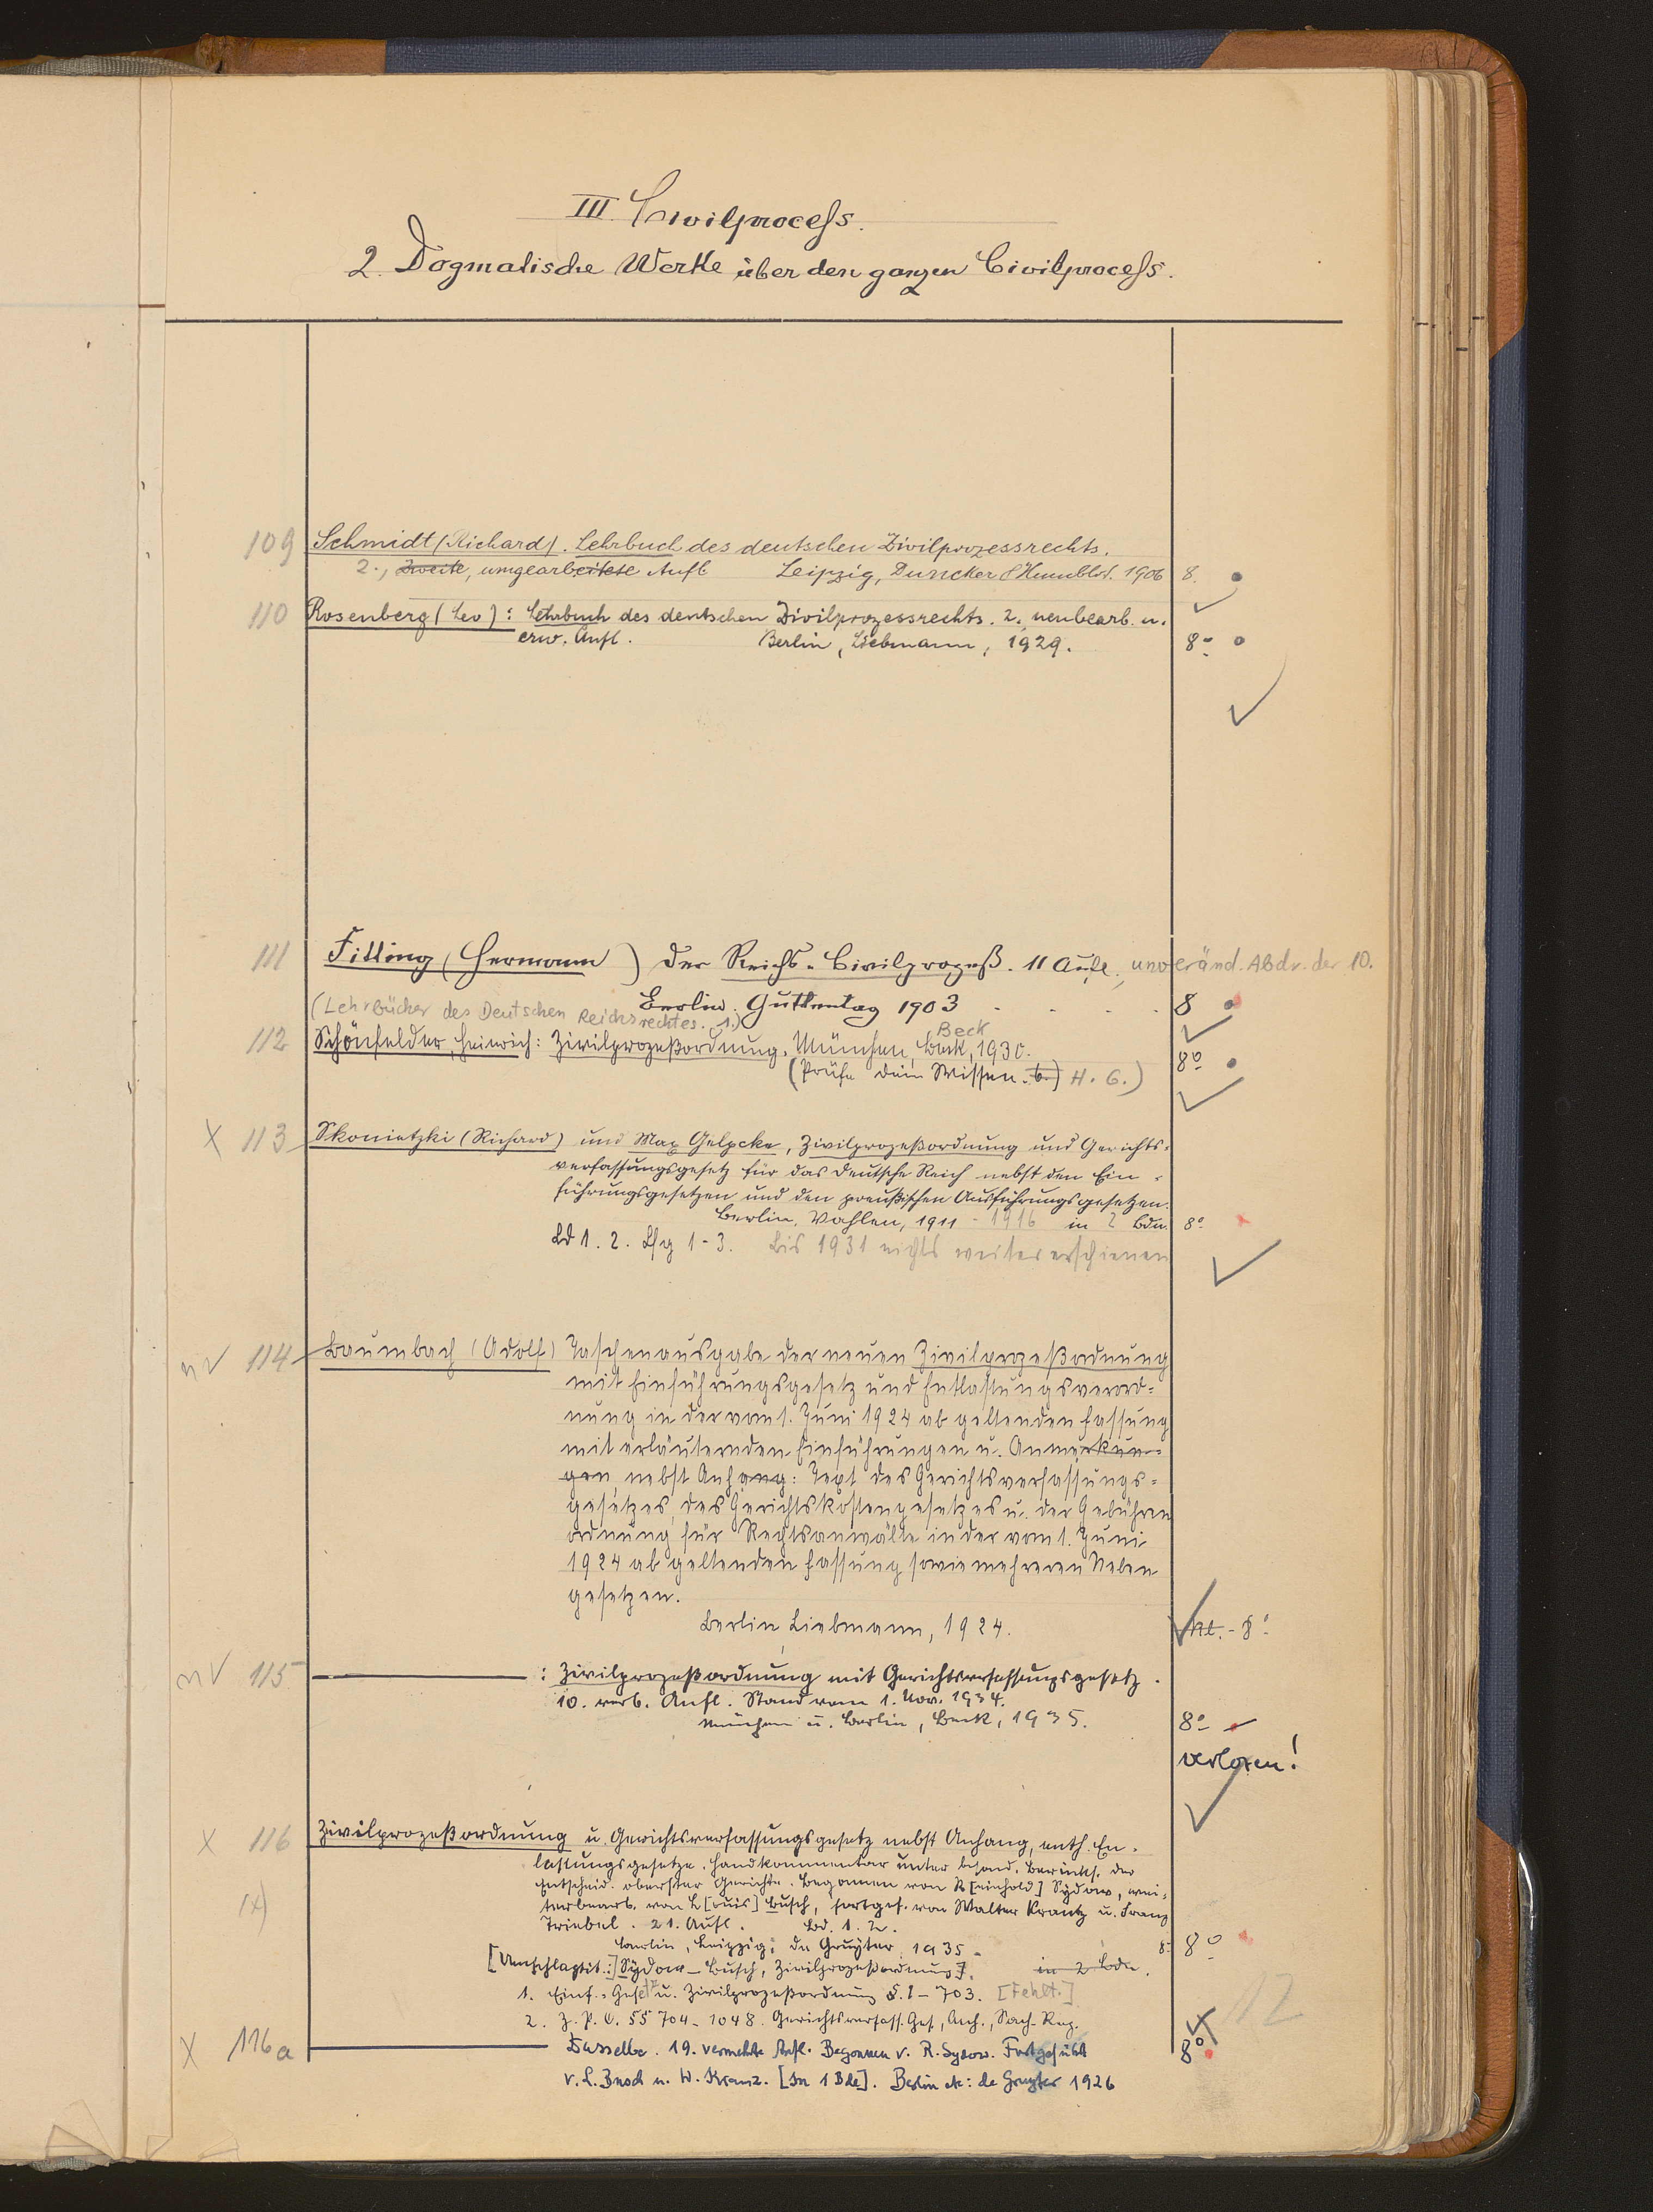 III. Civilprocess.
2. Dogmatische Werke über den ganzen Civilprocess.
109 Schmidt (Richard). Lehrbuch des deutschen Zivilprozessrechts.
2., Zweite, umgearbeitete Aufl Leipzig, Duncker & Humblot. 1906 8.
110 Rosenberg (Leo): Lehrbuch des deutschen Zivilprozessrechts. 2., neubearb. u.
erw. Aufl. Berlin, Liebmann, 1929. 8º
111 Fitting (Hermann) Der Reichs-Civilprozeß. 11 Aufl., unveränd. Abdr. der 10.
(Lehrbücher des Deutschen Reichsrechtes. 1.) Berlin. Guttentag 1903 8
Beck
112 Schönfelder, Heinrich: Zivilprozeßordnung. München, Beck, 1930.
(Prüfe dein Wissen. 6.) H. 6.) 8º
X 113 Skonietzki (Richard) und Max Gelpcke, Zivilprozeßordnung und Gerichts-
verfassungsgesetz für das Deutsche Reich nebst den Ein-
führungsgesetzen und den preußischen Ausführungsgesetzen.
Berlin, Vahlen, 1911 - 1916 in 2 Bdn. 8º
Bd 1. 2. Lfg 1-3. Bis 1931 nichts weiter erschienen
114 Baumbach (Adolf) Taschenausgabe der neuen Zivilprozeßordnung
mit Einführungsgesetz und Entlastungsverord-
nung in der vom 1. Juni 1924 ab geltenden Fassung
mit erläuternden Einführungen u. Anmerkun-
gen nebst Anhang: Text des Gerichtsverfassungs-
gesetzes, des Gerichtskostengesetzes u. der Gebühren
ordnung für Rechtsanwälte in der vom 1. Juni
1924 ab geltenden Fassung sowie mehreren Neben
gesetzen.
Berlin, Liebmann, 1924. kl. - 8º
115 : Zivilprozeßordnung mit Gerichtsverfassungsgesetz.
10. verb. Aufl. Stand vom 1. Nov. 1934.
München u. Berlin, Beck, 1935. 8º
verloren!
X 116 Zivilprozeßordnung u. Gerichtsverfassungsgesetz nebst Anhang, enth. En-
lastungsgesetze. Handkommentar unter besond. Berücks. der
Entscheid. oberster Gerichte. Begonnen von R[einhold] Sydow, wei-
(x) terbearb. von L[ouis] Busch, fortges. von Walter Krantz u. Franz
Triebel. 21. Aufl. Bd. 1. 2.
Berlin, Leipzig: de Gruyter 1935. 8º 8º
[Umschlagtit.:] Sydow-Busch, Zivilprozeßordnung]. in 2 Bdn.
1. Einf.-Gesetz u. Zivilprozeßordnung §. 1-703. [Fehlt.]
2. Z. P. O. §§ 704-1048. Gerichtsverfass. Ges., Anh., Sach-Reg. 12
X 116a Dasselbe. 19. vermehrte Aufl. Begonnen v. R. Sydow. Fortgeführt 8º
v. L. Busch u. W. Kranz. [In 1 Bde]. Berlin etc: de Gruyter 1926